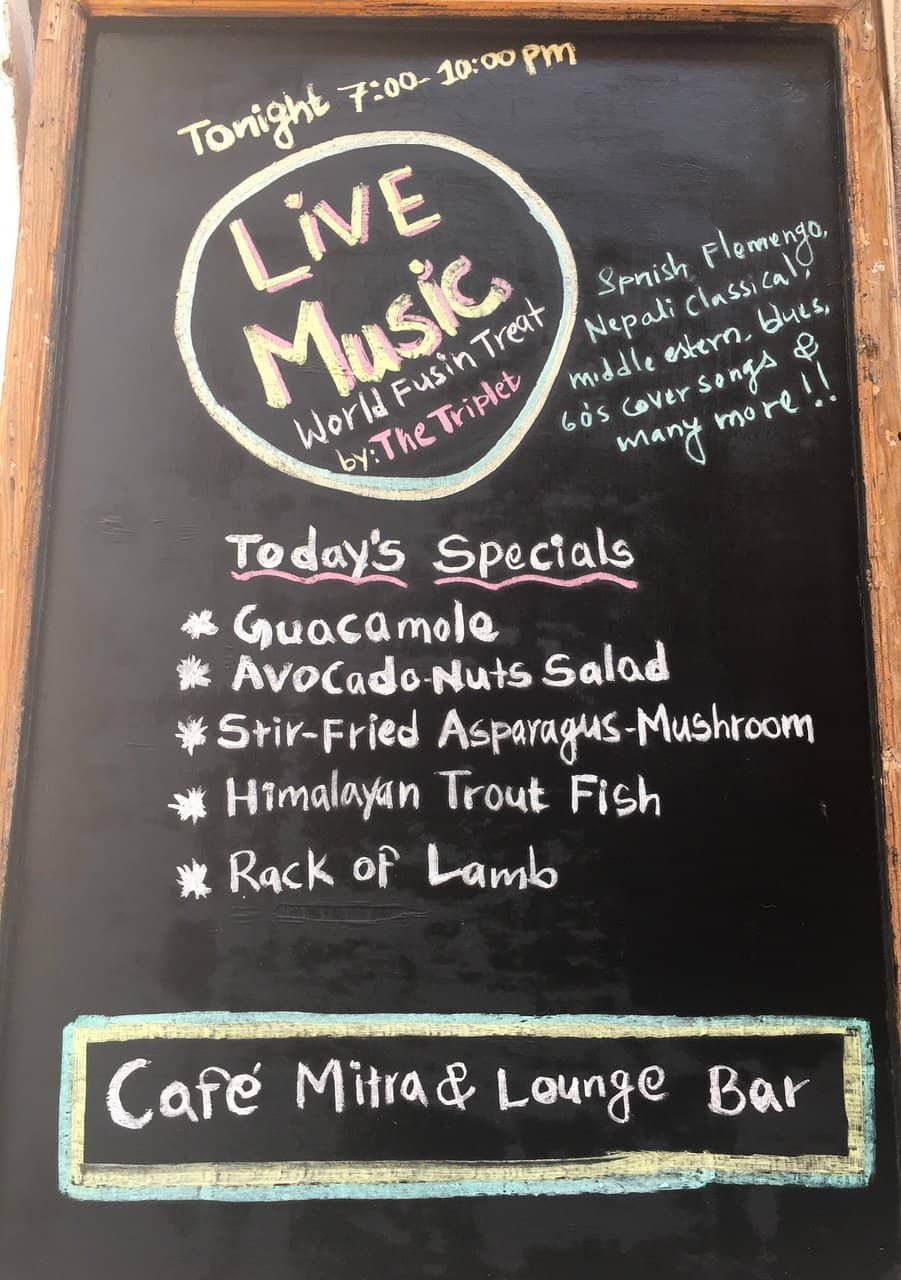 Tonight 7:00-10:00 pm
LiVE
Music
World Fusin Treat
by: The Triplet
Spnish Flemengo,
Nepali classical,
middle estern, blues,
60's cover songs &
many more!!
Today's Specials
* Guacamole
* Avocado-Nuts Salad
* Stir-Fried Asparagus-Mushroom
* Himalayan Trout Fish
* Rack of Lamb
Café Mitra & Lounge Bar